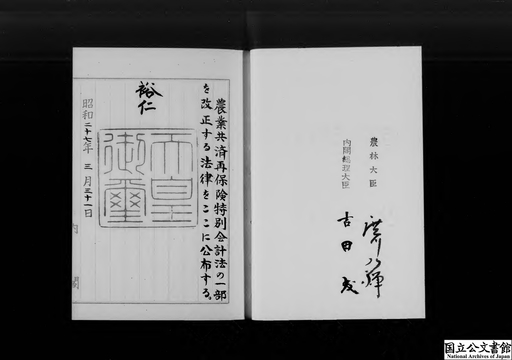 農業共済再保険特別会計法の一部
を改正する法律をここに公布する。
裕仁
天皇
御璽
昭和二十七年三月三十一日
内閣
農林大臣
内閣総理大臣 吉田茂
国立公文書館
National Archives of Japan